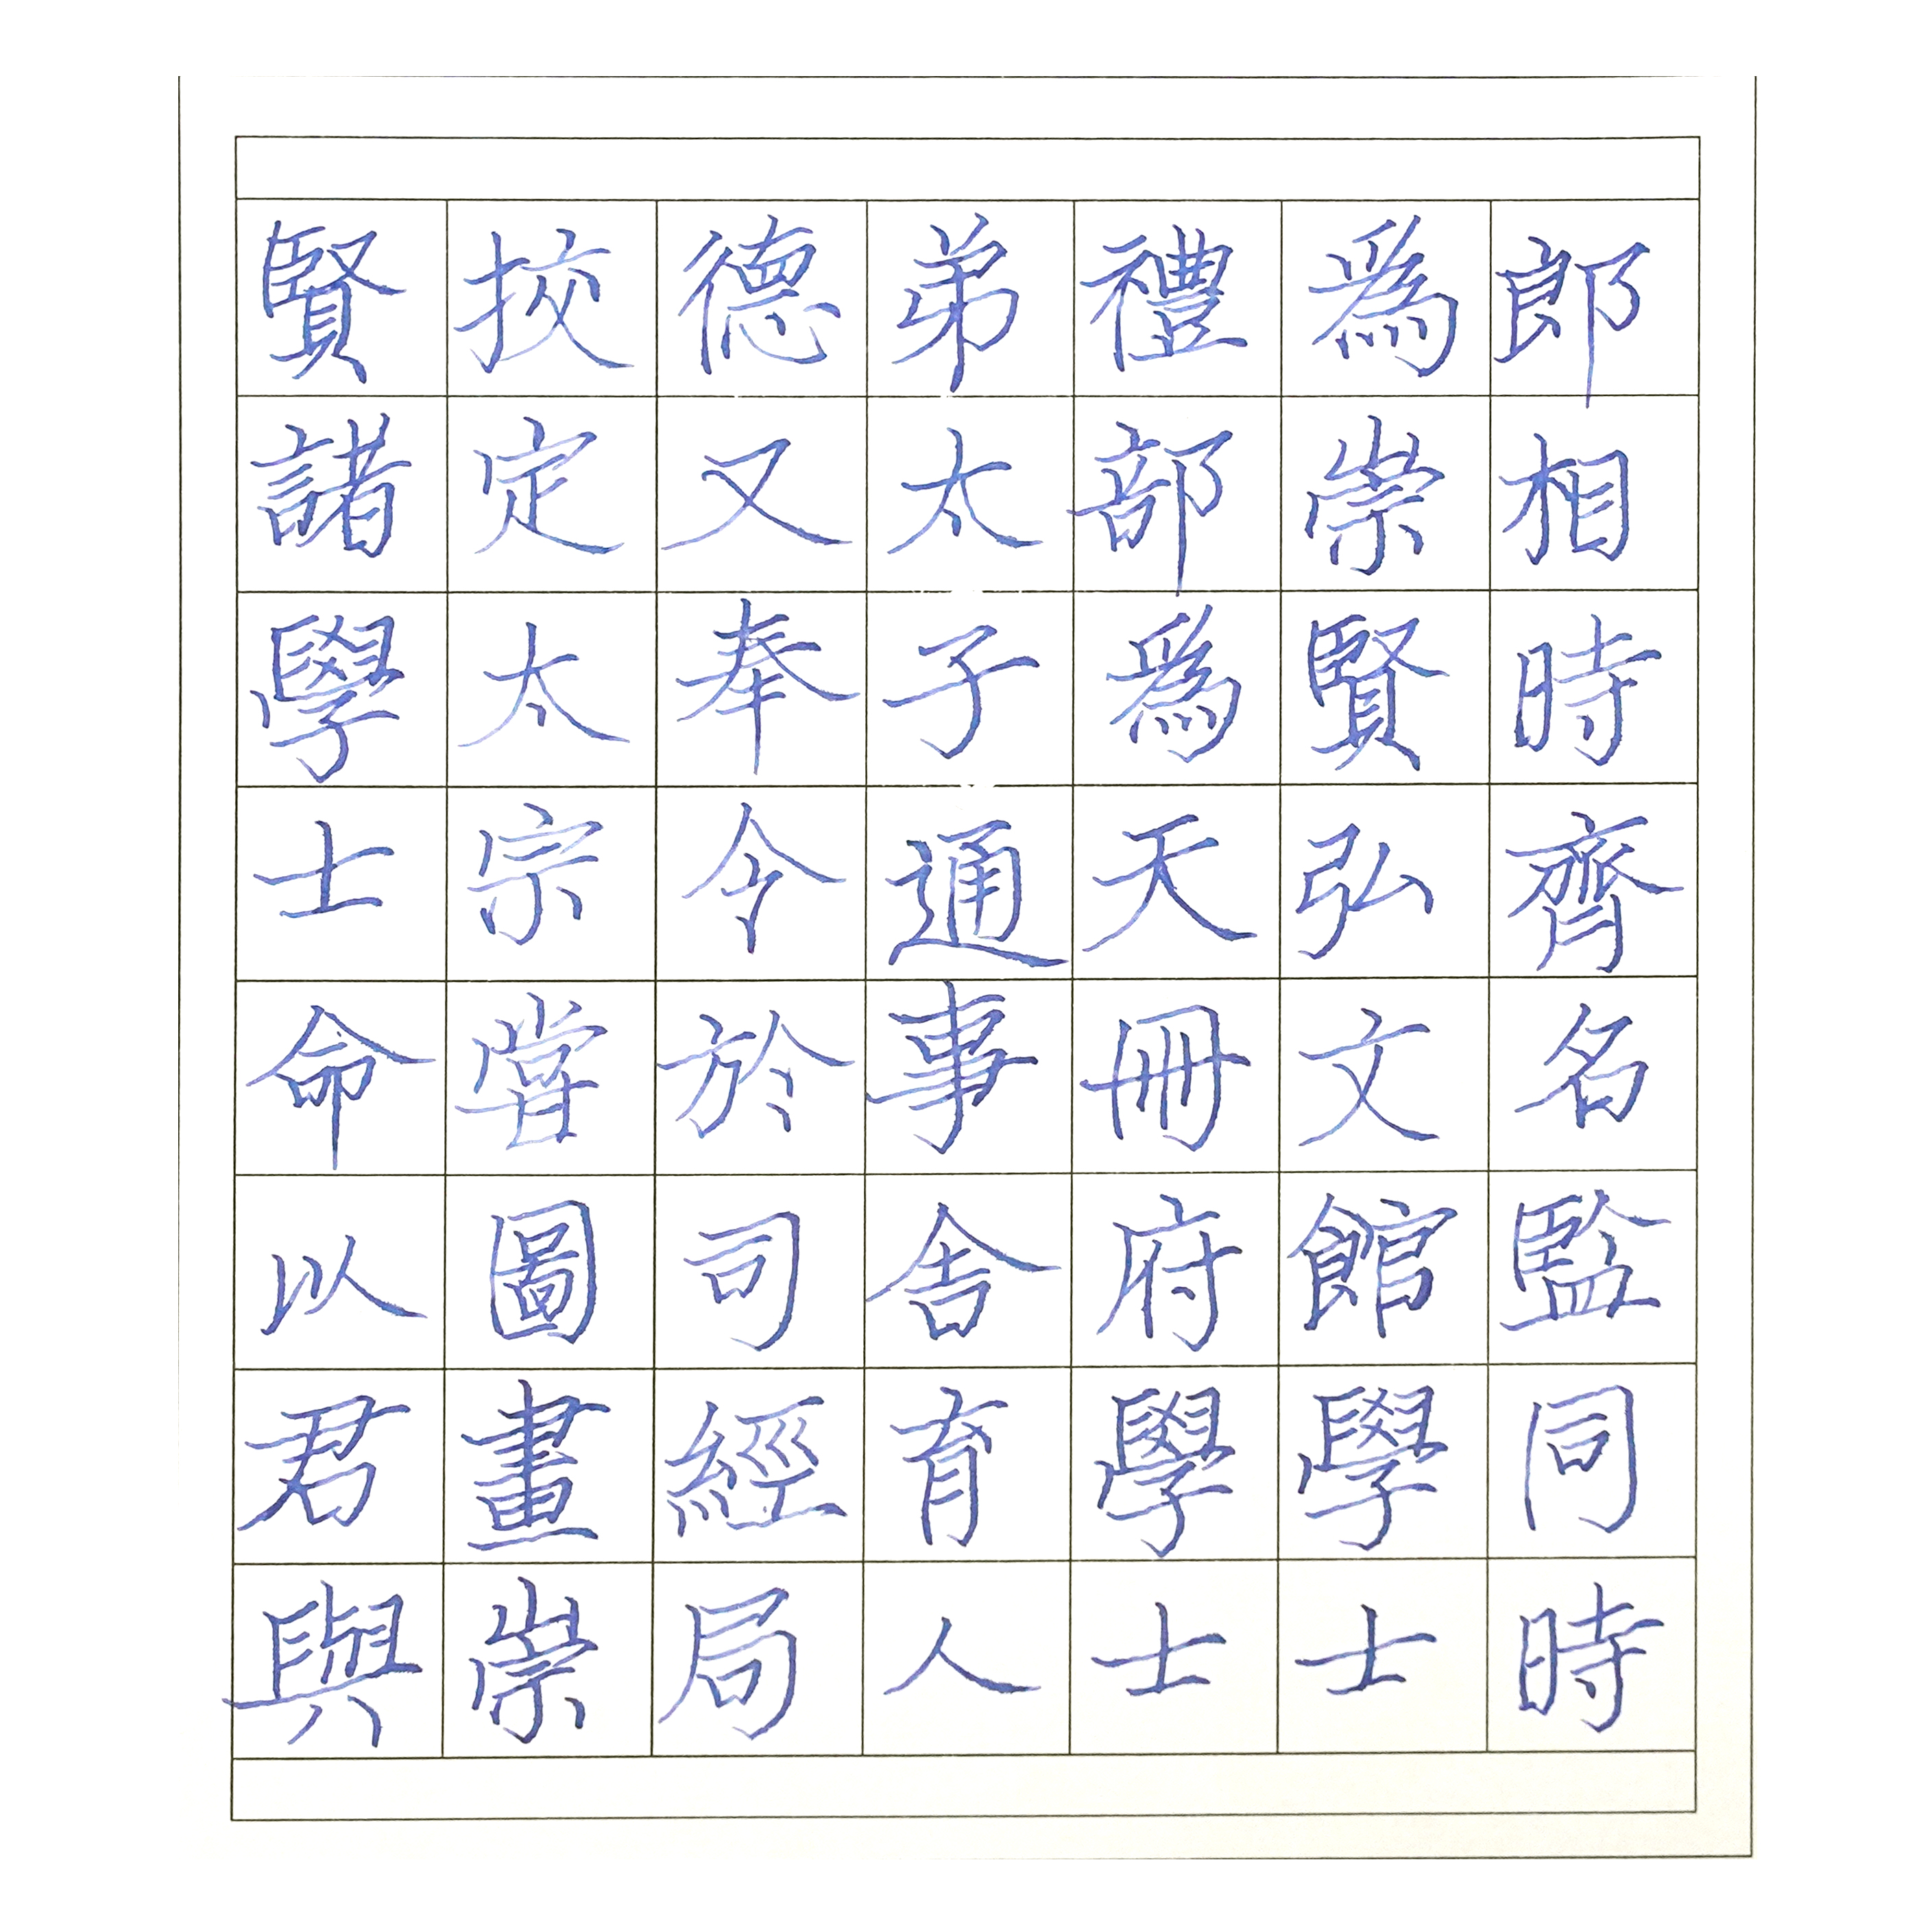 郎相時齊名監同時
為崇賢弘文館學士
禮部為天冊府學士
弟太子通事舍育人
德又奉令於司經局
挍定太宗嘗圖畫崇
賢諸學士命以君與